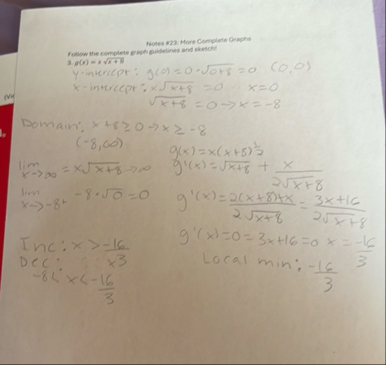 Notes #23: More Complete Graphs
Follow the complete graph guidelines and sketch!
3. g(x) = x √x+8
y-intercept: g(0) = 0·√0+8 = 0 (0,0)
x-intercept: x√x+8 = 0 x=0
√x+8 = 0 → x = -8
Domain: x+8 ≥ 0 → x ≥ -8
(-8,∞)
lim x→∞ = x√x+8 → ∞
lim x→-8+ -8·√0 = 0
g(x) = x(x+8)^1/2
g'(x) = √x+8 + x/2√x+8
g'(x) = 2(x+8)+x/2√x+8 = 3x+16/2√x+8
g'(x) = 0 = 3x+16 = 0 x = -16/3
Local min: -16/3
Inc: x > -16/3
Dec:
-8 < x < -16/3